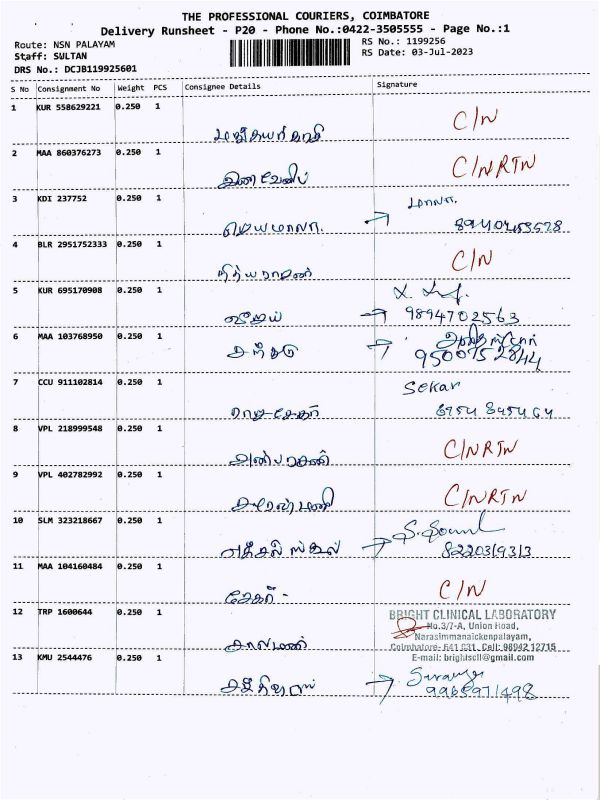 THE PROFESSIONAL COURIERS, COIMBATORE
Delivery Runsheet - P20 - Phone No.:0422-3505555 - Page No.:1
Route: NSN PALAYAM
RS No.: 1199256
Staff: SULTAN
RS Date: 03-Jul-2023
DRS No.: DCJB119925601
S No Consignment No Weight PCS Consignee Details Signature
1 KUR 558629221 0.250 1
C/N
2 MAA 860376273 0.250 1
C/NRTN
3 KDI 237752 0.250 1
மாலா.
ஜெயமாலா.
4 BLR 2951752333 0.250 1
C/N
நித்யராமன்
5 KUR 695170908 0.250 1
விஜய் → 9894702563
6 MAA 103768950 0.250 1
→ 9500752844
7 CCU 911102814 0.250 1
Sekar
ராஜசேகர்
8 VPL 218999548 0.250 1
C/NRTN
அன்பரசன்
9 VPL 402782992 0.250 1
C/NRTN
10 SLM 323218667 0.250 1
→ 8220319313
11 MAA 104160484 0.250 1
C/N
சேகர் -
12 TRP 1600644 0.250 1
BRIGHT CLINICAL LABORATORY
No.3/7-A, Union Road,
Narasimmanaickenpalayam,
பாலமணி
Coimbatore- 641 031. Cell: 98942 12715
E-mail: brightscll@gmail.com
13 KMU 2544476 0.250 1
→ 9965971498